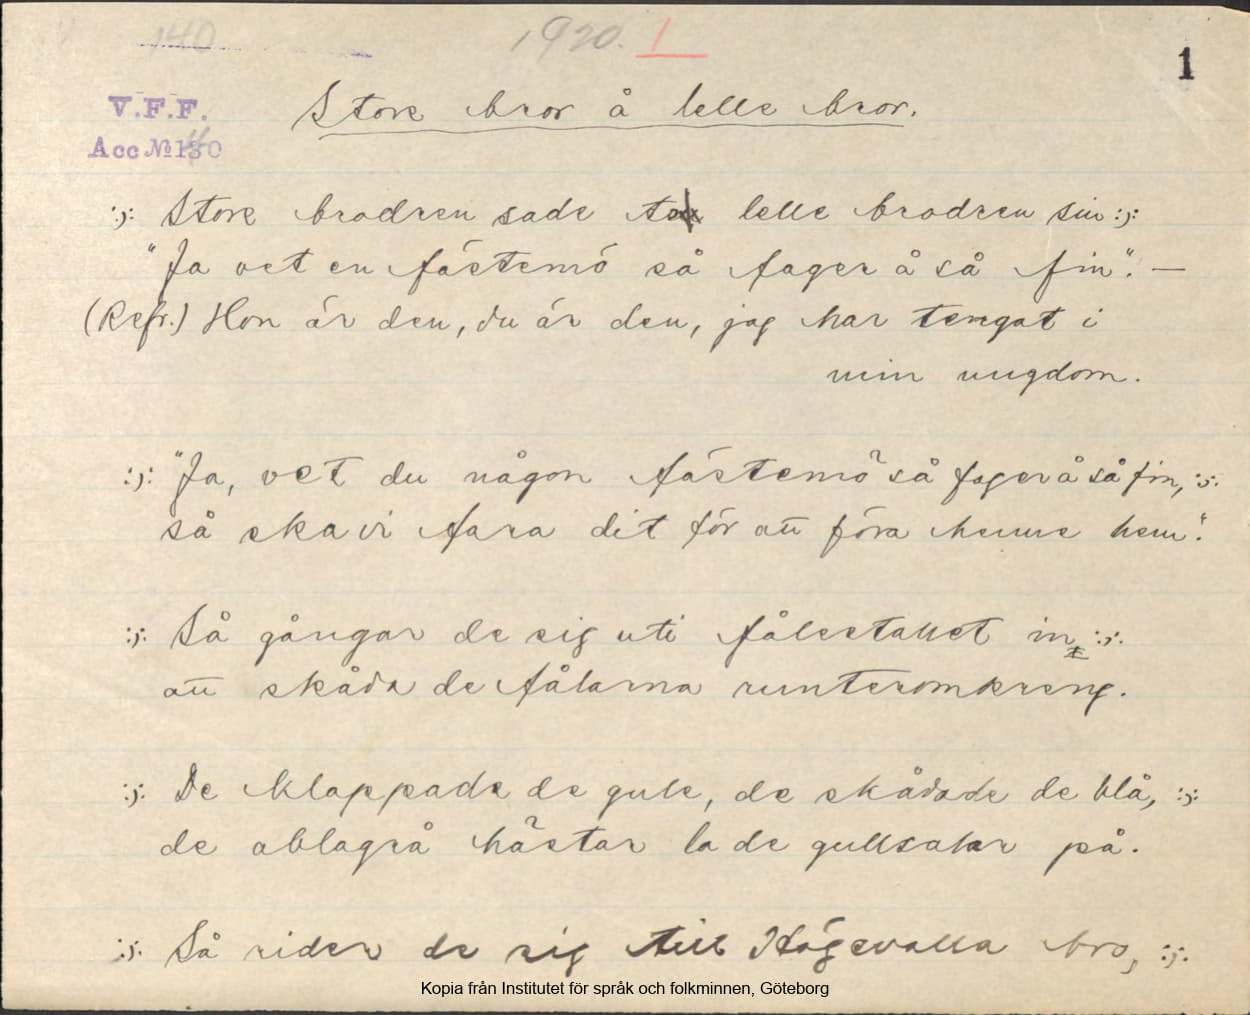 140
1920. 1
1
V.F.F.
Acc № 140
Store bror å lelle bror.
:,: Store brodren sade te lelle brodren sin :,:
"Ja vet en fästemö så fager å så fin". —
(Refr.) Hon är den, du är den, jag har tengat i
min ungdom.
:,: "Ja, vet du någon fästemö så fager å så fin, :,:
så ska vi fara dit för att föra henne hem".
:,: Så gångar de sig uti fålestallet in :,:
att skåda de fålarna runteromkreng.
:,: De klappade de gule, de skådade de blå, :,:
de ablagrå hästar la de gullsalar på.
:,: Så rider de sig till Högevalla bro, :,:
Kopia från Institutet för språk och folkminnen, Göteborg